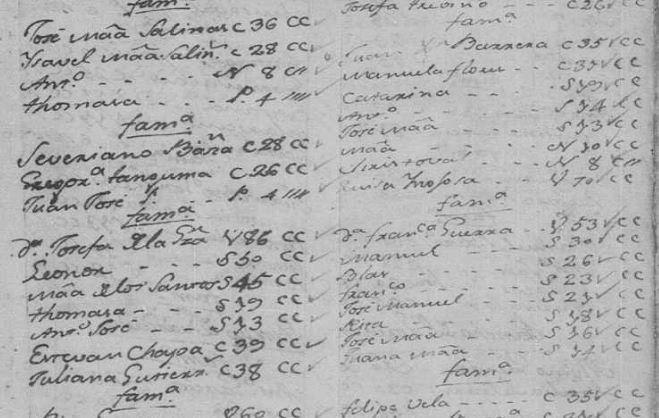 fam.ª
José Mãa Salinas c 36 cc
Ysavel Mãa Salin.s c 28 cc
Ant.º - - - N 8 c
thomasa - - - P. 4
fam.ª
Severiano c 28 cc
Gregor.ª tanguma c 26 cc
Juan José P. 4
fam.ª
d.ª Josefa dela Gza V 86 cc
Leonor - - - S 50 cc
Mãa delos Santos S 45 cc
thomasa - - - S 19 cc
Ant.º José - - S 13 cc
Estevan Chapa c 39 cc
Juliana Gutierr.z c 38 cc
fam.ª
60 cc
Josefa treviño - - c 26 cc
fam.ª
Juan Barrera c 35 cc
Manuela flores - - c 37 cc
Catarina - - - S 19 cc
Ant.º - - - S 14 cc
José Mãa - - - S 13 cc
Mãa - - - N 10 cc
- - - N 8 c
Ynojosa - - V 70 cc
fam.ª
d.ª fran.ca Guerra - - V 53 cc
Manuel - - - S 30 cc
Blas - - - S 26 cc
fran.co - - - S 23 cc
José Manuel - - - S 21 cc
Rita - - - S 18 cc
José Mãa - - - S 16 cc
Juana Mãa - - - S 14 cc
fam.ª
felipe Vela - - - c 35 cc